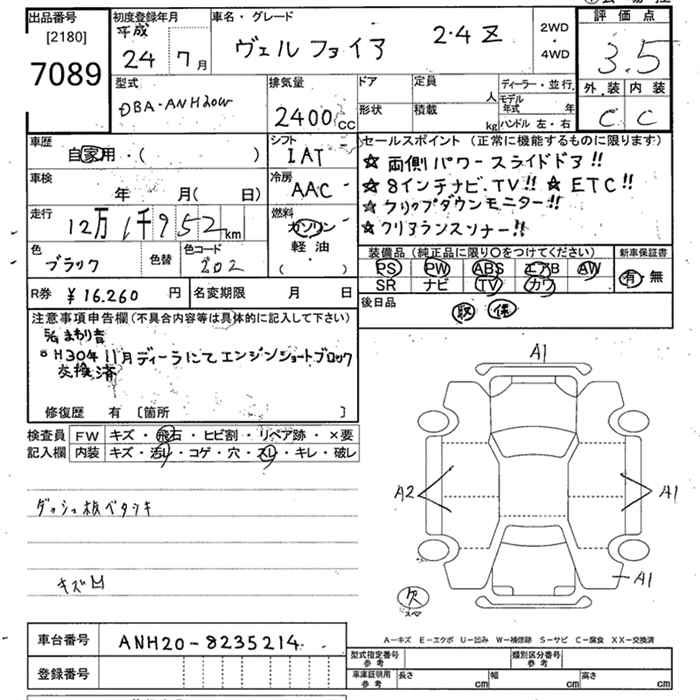 出品番号
[2180]
7089
初度登録年月
平成
24年7月
車名・グレード
ヴェルファイア 2.4Z
2WD
・
4WD
評価点
3.5
外装 内装
C C
型式
DBA-ANH20W
排気量
2400CC
ドア
形状
定員
人
積載
kg
ディーラー・並行
モデル年式 年
ハンドル 左・右
車歴
自家用・( )
シフト
IAT
車検
年 月(日)
冷房
AAC
走行
12万1千952km
燃料
ガソリン
軽油・
( )
色
ブラック
色替
色コード
202
セールスポイント(正常に機能するものに限ります)
☆両側パワースライドドア!!
☆8インチナビ.TV!! ☆ETC!!
☆フリップダウンモニター!!
☆クリアランスソナー!!
装備品(純正品に限り○をつけてください)
PS PW ABS エアB AW
SR ナビ TV カワ
新車保証書
有・無
R券 ¥16.260円
名変期限 月 日
後日品
取 保
注意事項申告欄(不具合内容等は具体的に記入して下さい)
H30年11月ディーラにてエンジンショートブロック
交換済
修復歴 有 [箇所 ]
検査員
記入欄
FW キズ・飛石・ヒビ割・リペア跡・×要
内装 キズ・汚レ・コゲ・穴・スレ・キレ・破レ
ダッシュ板ベタツキ
キズ凹
A1
A2
A1
A1
欠
スペア
A-キズ E-エクボ U-凹み W-補修跡 S-サビ C-腐食 XX-交換済
車台番号 ANH20-8235214
登録番号
型式指定番号
参考
類別区分番号
参考
車庫証明用
参考
長さ cm
幅 cm
高さ cm